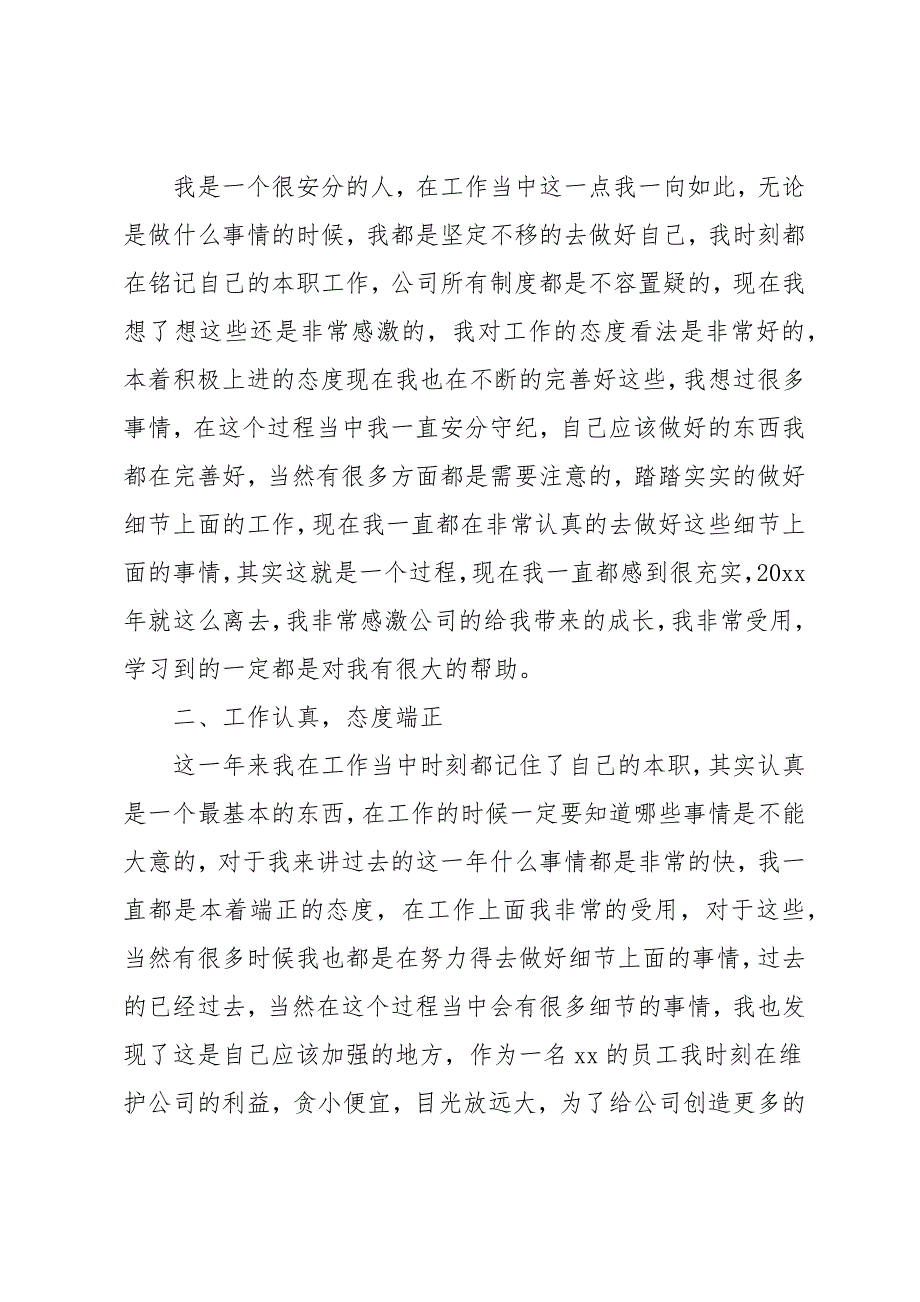 我是一个很安分的人，在工作当中这一点我一向如此，无论
是做什么事情的时候，我都是坚定不移的去做好自己，我时刻都
在铭记自己的本职工作，公司所有制度都是不容置疑的，现在我
想了想这些还是非常感激的，我对工作的态度看法是非常好的，
本着积极上进的态度现在我也在不断的完善好这些，我想过很多
事情，在这个过程当中我一直安分守纪，自己应该做好的东西我
都在完善好，当然有很多方面都是需要注意的，踏踏实实的做好
细节上面的工作，现在我一直都在非常认真的去做好这些细节上
面的事情，其实这就是一个过程，现在我一直都感到很充实，20xx
年就这么离去，我非常感激公司的给我带来的成长，我非常受用，
学习到的一定都是对我有很大的帮助。
二、工作认真，态度端正
这一年来我在工作当中时刻都记住了自己的本职，其实认真
是一个最基本的东西，在工作的时候一定要知道哪些事情是不能
大意的，对于我来讲过去的这一年什么事情都是非常的快，我一
直都是本着端正的态度，在工作上面我非常的受用，对于这些，
当然有很多时候我也都是在努力得去做好细节上面的事情，过去
的已经过去，当然在这个过程当中会有很多细节的事情，我也发
现了这是自己应该加强的地方，作为一名 xx 的员工我时刻在维
护公司的利益，贪小便宜，目光放远大，为了给公司创造更多的